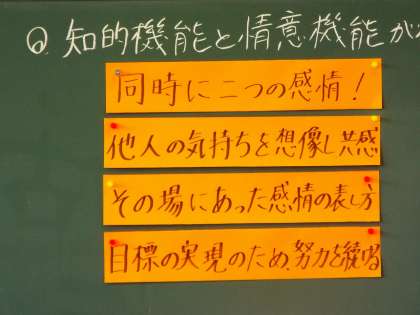 Q. 知的機能と情意機能が
同時に二つの感情!
他人の気持ちを想像し共感
その場にあった感情の表し方
目標の実現のため、努力を続ける